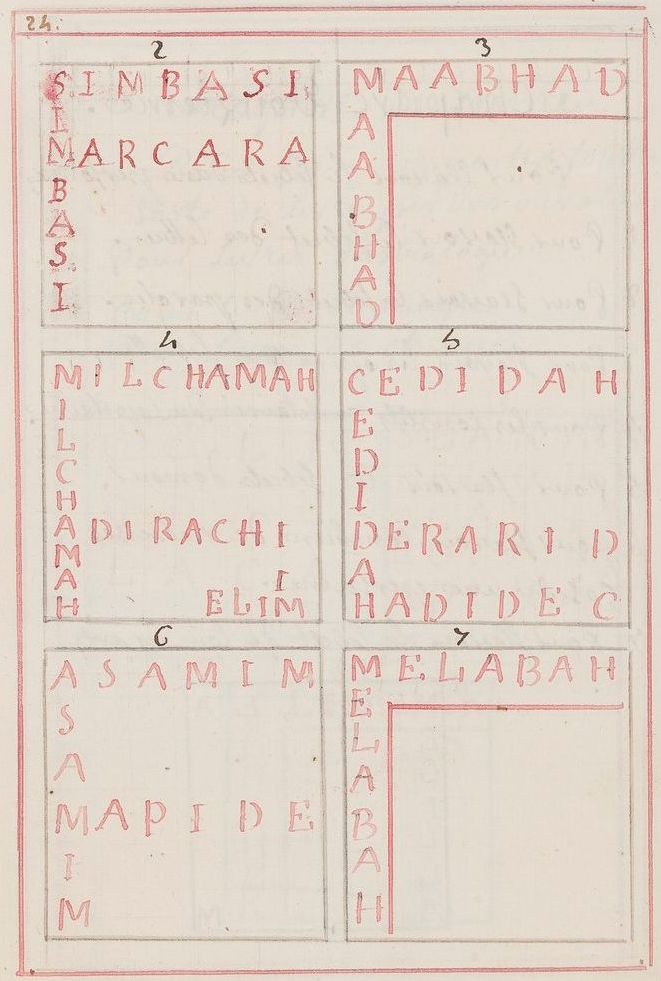 24.
2
SIMBASI
I
MARCARA
B
A
S
I
3
MAABHAD
A
A
B
H
A
D
4
MILCHAMAH
I
L
C
H
ADIRACHI
M I
A
H ELIM
5
CEDIDAH
E
D
I
DERARID
A
HADIDEC
6
ASAMIM
S
A
MAPIDE
I
M
7
MELABAH
E
L
A
B
A
H